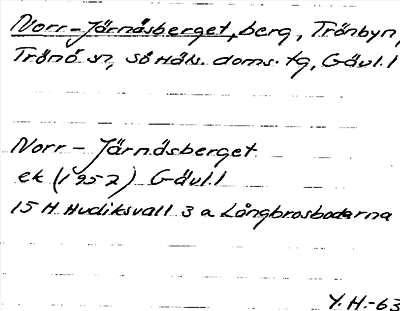 Norr-Järnåsberget, berg, Trönbyn,
Trönö sn, Sö Häls. doms. tg, Gävl. l
Norr-Järnåsberget
ek (1952) Gävl. l
15 H Hudiksvall 3 a Långbrosbodarna
Y. H. -63